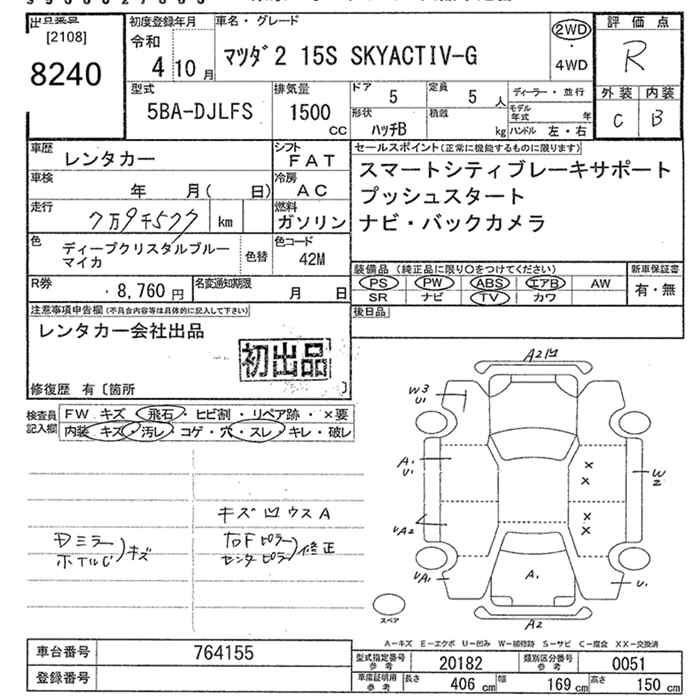 [2108]
8240
初度登録年月
令和
4年10月
車名・グレード
マツダ2 15S SKYACTIV-G
2WD
4WD
評価点
R
型式
5BA-DJLFS
排気量
1500
cc
ドア 5
定員 5 人
形状 ハッチB
積載 kg
ディーラー・並行
モデル年式 年
ハンドル 左・右
外装 内装
C B
車歴 レンタカー
シフト FAT
車検 年 月( 日)
冷房 AC
走行 7万9千577 km
燃料 ガソリン
色 ディープクリスタルブルーマイカ
色替
色コード 42M
セールスポイント(正常に機能するものに限ります)
スマートシティブレーキサポート
プッシュスタート
ナビ・バックカメラ
R券 8,760円
名変通知期限 月 日
装備品(純正品に限り○をつけてください)
PS PW ABS エアB AW
SR ナビ TV カワ
新車保証書
有・無
注意事項申告欄(不具合内容等は具体的に記入して下さい)
レンタカー会社出品
初出品
修復歴 有〔箇所 〕
後日品
検査員記入欄
FW キズ・飛石・ヒビ割・リペア跡・×要
内装 キズ・汚レ・コゲ・穴・スレ・キレ・破レ
キズ凹ウスA
ホイルC キズ
右Fピラー
センターピラー 修正
A2凹
W3
U1
A1
U1
W2
A1
U1
A2
スペア
A-キズ E-エクボ U-凹み W-補修跡 S-サビ C-腐食 XX-交換済
車台番号 764155
登録番号
型式指定番号 参考 20182
類別区分番号 参考 0051
車庫証明用 参考 長さ 406 cm 幅 169 cm 高さ 150 cm